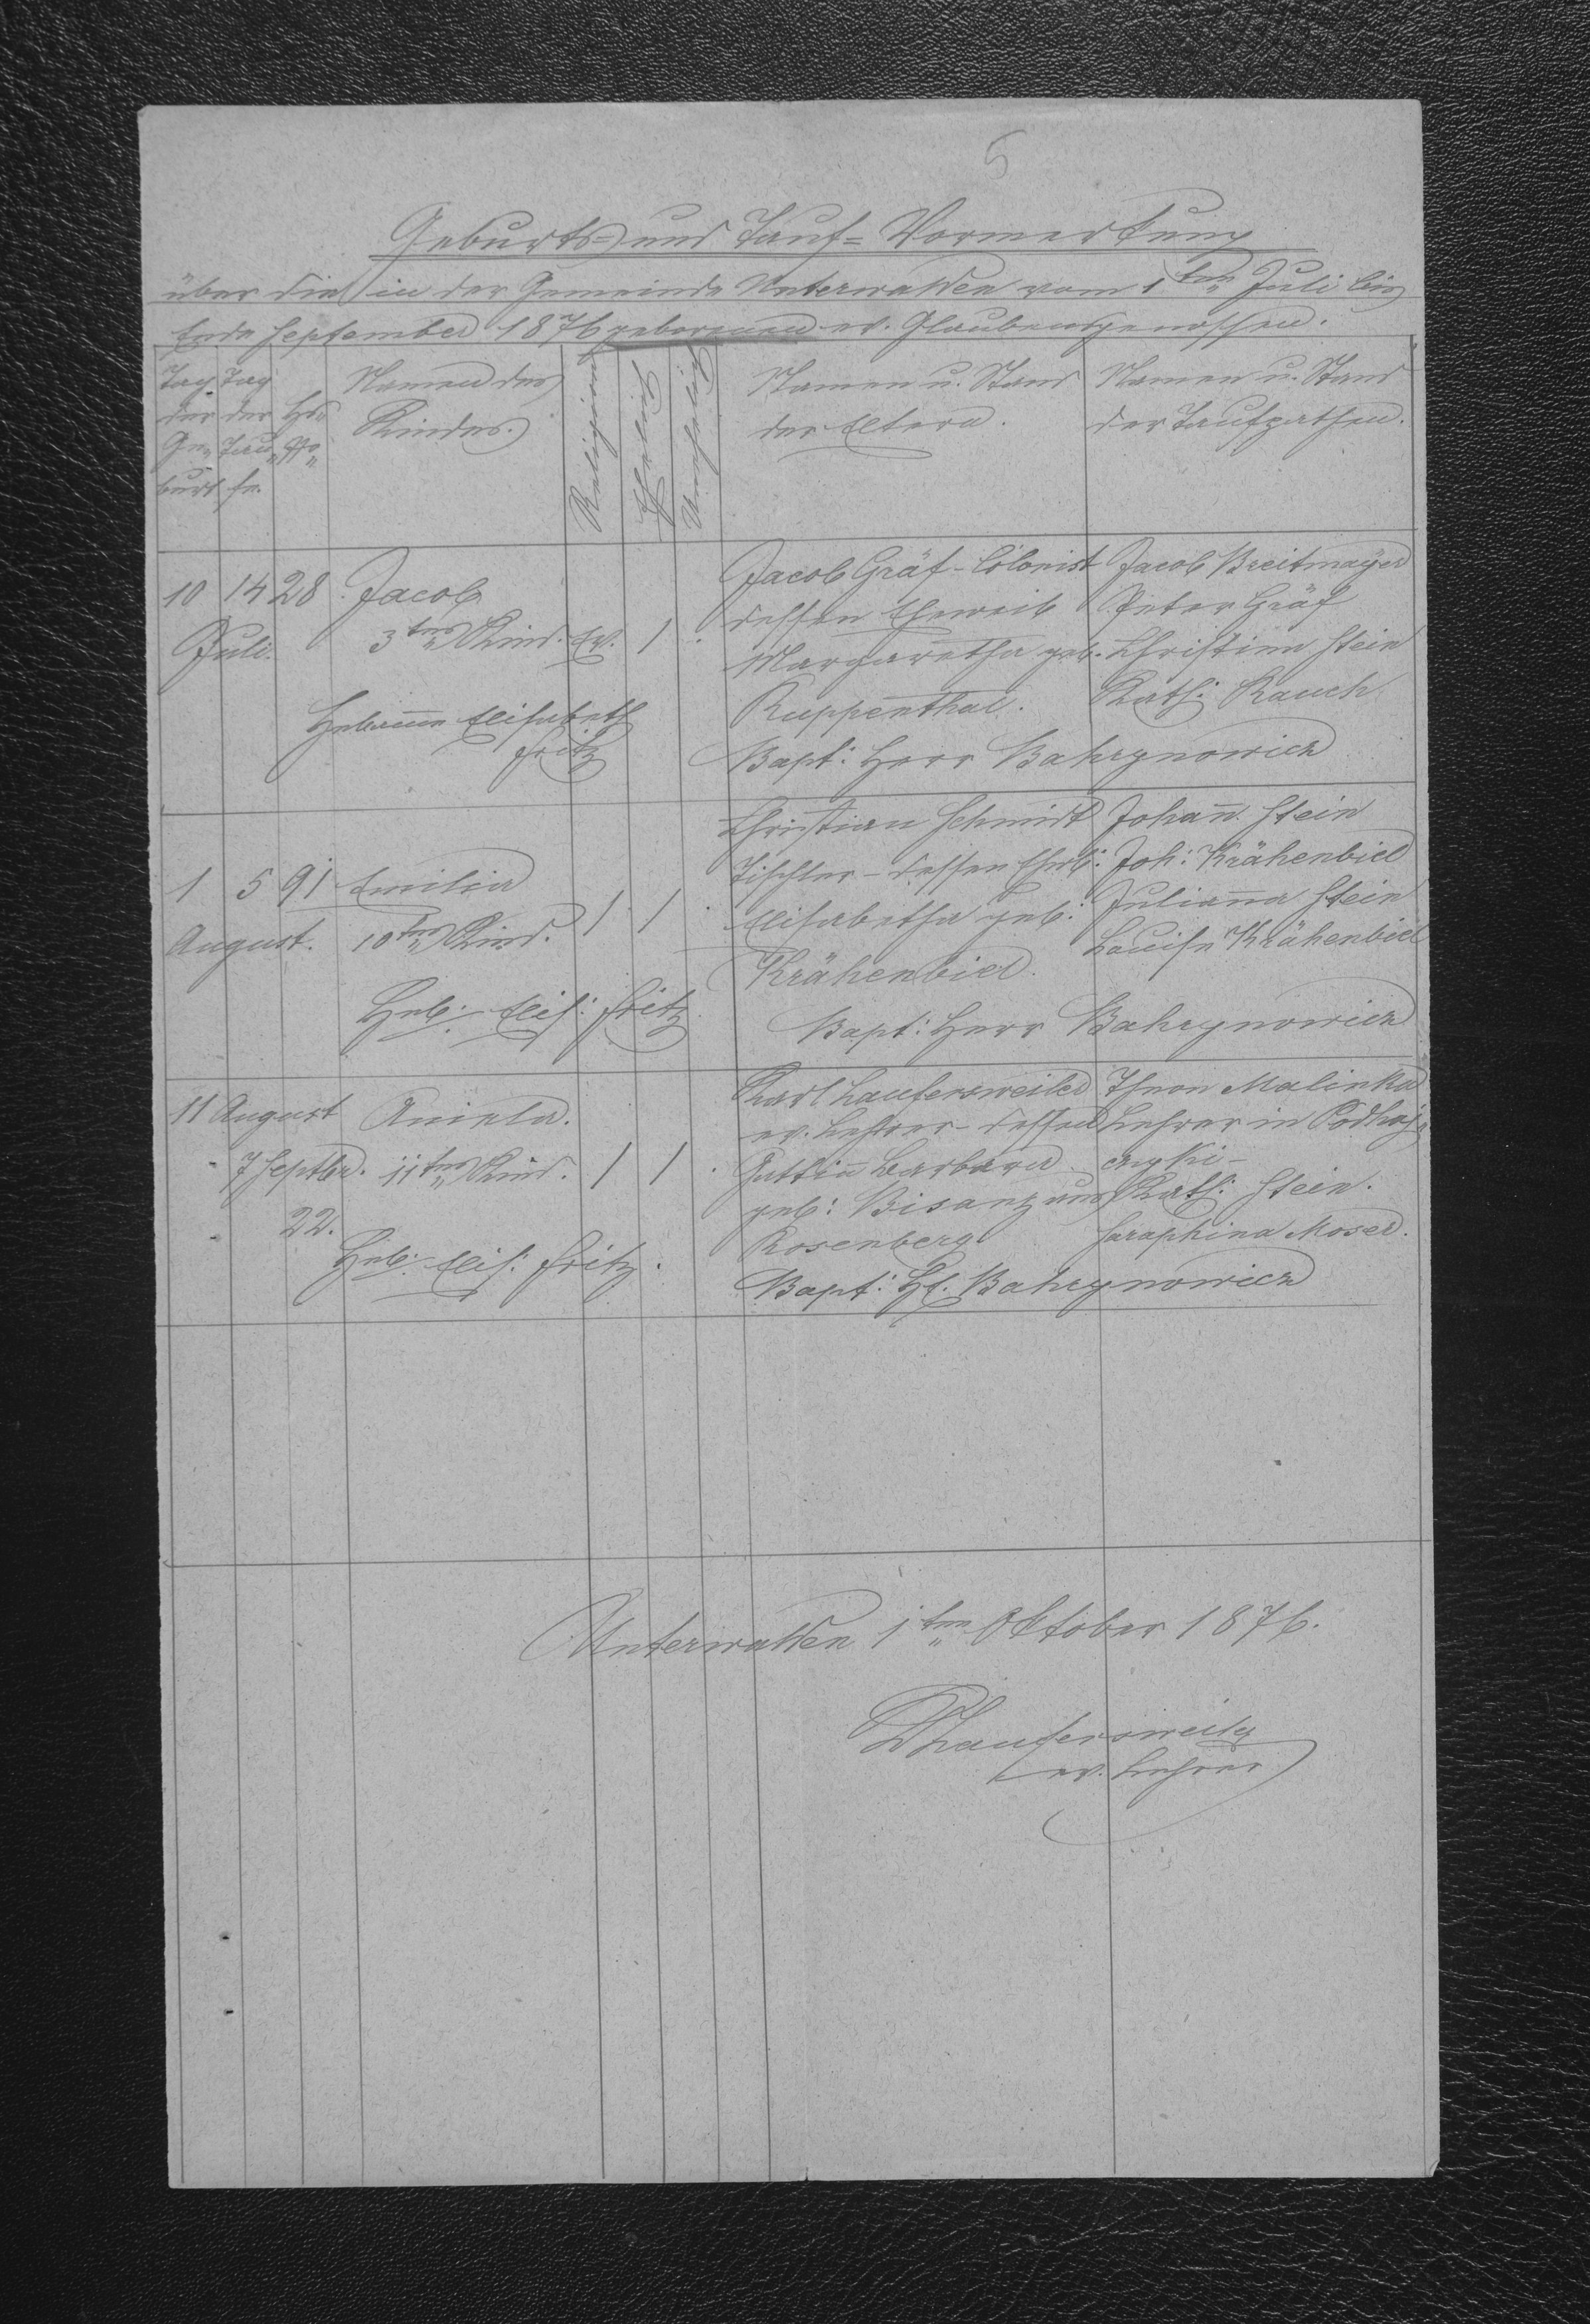 5
Geburts= und Tauf=Vormerkung
über die in der Gemeinde Unterwalden vom 1ten Juli bis
Ende September 1876 geborenen ev. Glaubensgenossen.
Tag der Ge„burt
Tag der Tau„fe.
Hs„ No„
Namen des
Kindes.
Religion
Ehelich
Unehelich
Namen u. Stand
der Eltern.
Namen u. Stand
der Taufpathen.
10 14 28 Jacob
Juli. 3tes Kind. ev. 1 .
Hebamme Elisabeth
Fritz
Jacob Gräf - Colonist
dessen Eheweib
Margaretha geb.
Ruppenthal.
Jacob Breitmayer
Peter Gräf
Christina Stein
Kath: Rauch
Bapt: Herr Bahrynowicz
1 5 91 Emilia
August. 10tes Kind. / / .
Heb: Elis: Fritz
Christian Schmidt
Tischler - dessen Ehwb:
Elisabetha geb:
Krähenbiel.
Johann̅ Stein
Joh: Krähenbiel
Julian̅a Stein
Louise Krähenbiel
Bapt: Herr Bahrynowicz
11 August Aniela.
7 Septbr. 11tes Kind. / / .
22.
Heb: Elis: Fritz.
Karl Laufersweiler
ev. Lehrer - dessen
Gattin̅ Barbara
geb: Bisanz aus
Rosenberg
Malinka
Lehrer in Podhaj
czyki -
Kath: Stein.
Seraphina Moser.
Bapt: H. Bahrynowicz
Unterwalden 1ten Oktober 1876.
KLaufersweiler
ev. Lehrer